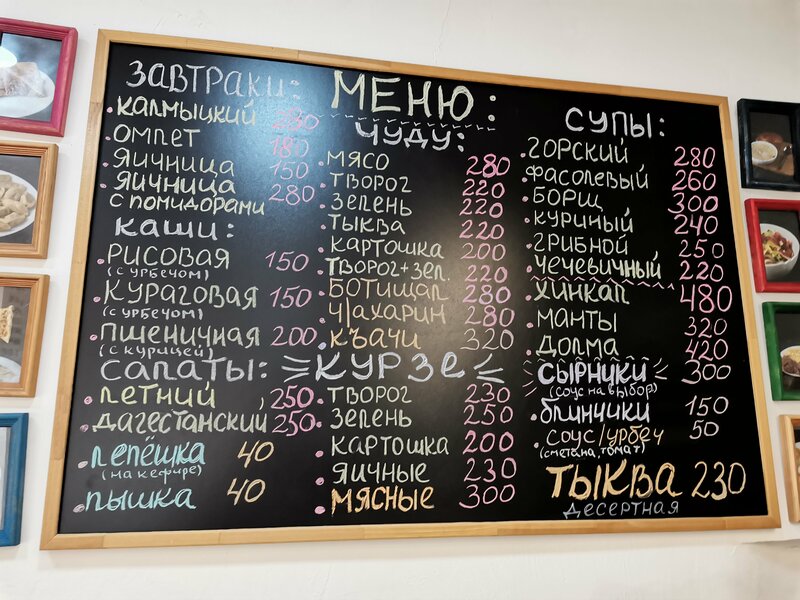 МЕНЮ:
ЗАВТРАКИ:
КАЛМЫЦКИЙ 230
ОМЛЕТ 180
ЯИЧНИЦА 150
ЯИЧНИЦА
С ПОМИДОРАМИ 280
КАШИ:
РИСОВАЯ 150
(С УРБЕЧОМ)
КУРАГОВАЯ 150
(С УРБЕЧОМ)
ПШЕНИЧНАЯ 200
(С КУРИЦЕЙ)
САЛАТЫ:
ЛЕТНИЙ 250
ДАГЕСТАНСКИЙ 250
ЛЕПЁШКА 40
(НА КЕФИРЕ)
ПЫШКА 40
ЧУДУ:
МЯСО 280
ТВОРОГ 220
ЗЕЛЕНЬ 220
ТЫКВА 220
КАРТОШКА 200
ТВОРОГ+ЗЕЛ. 220
БОТИШАЛ 280
Ч|АХАРИН 280
КЪАЧИ 320
КУРЗЕ
ТВОРОГ 230
ЗЕЛЕНЬ 250
КАРТОШКА 200
ЯИЧНЫЕ 230
МЯСНЫЕ 300
СУПЫ:
ГОРСКИЙ 280
ФАСОЛЕВЫЙ 260
БОРЩ 300
КУРИНЫЙ 240
ГРИБНОЙ 250
ЧЕЧЕВИЧНЫЙ 220
ХИНКАЛ 480
МАНТЫ 320
ДОЛМА 420
СЫРНИКИ 300
(СОУС НА ВЫБОР)
БЛИНЧИКИ 150
СОУС/УРБЕЧ 50
(СМЕТАНА, ТОМАТ)
ТЫКВА 230
ДЕСЕРТНАЯ